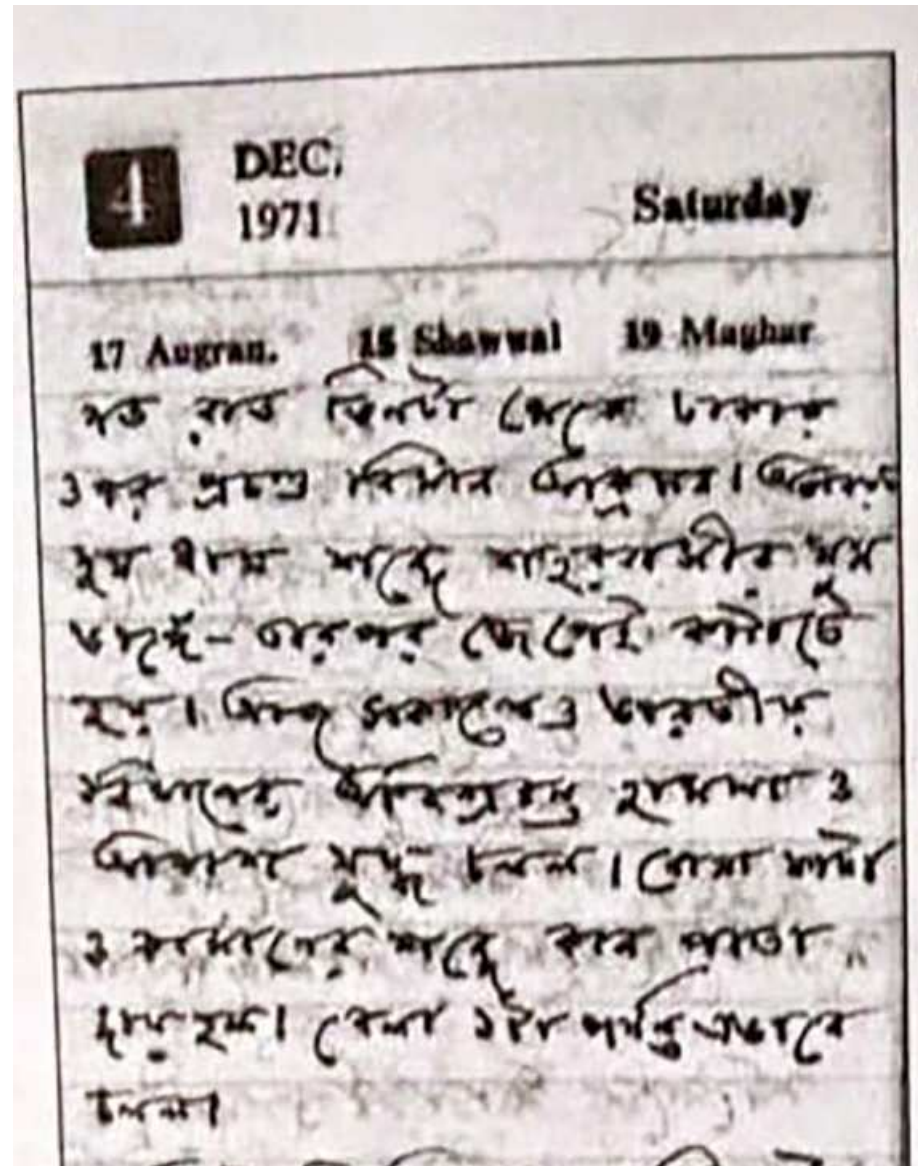 4
DEC.
1971
Saturday
17 Augran. 15 Shawwal 19 Maghar
গত রাত তিনটা থেকে ঢাকার
ওপর প্রচণ্ড বিমান আক্রমন।
শব্দে শহরবাসীর ঘুম
ভাঙ্গে - তারপর জেগেই কাটাতে
হয়। আজ সকালেও ভারতীয়
বিমানের হামলা ও
আকাশ যুদ্ধ চলল। বোমা ফাটা
ও কামানের শব্দে কান পাতা
দায় হল। বেলা ১টা পর্যন্ত এভাবে
চলল।